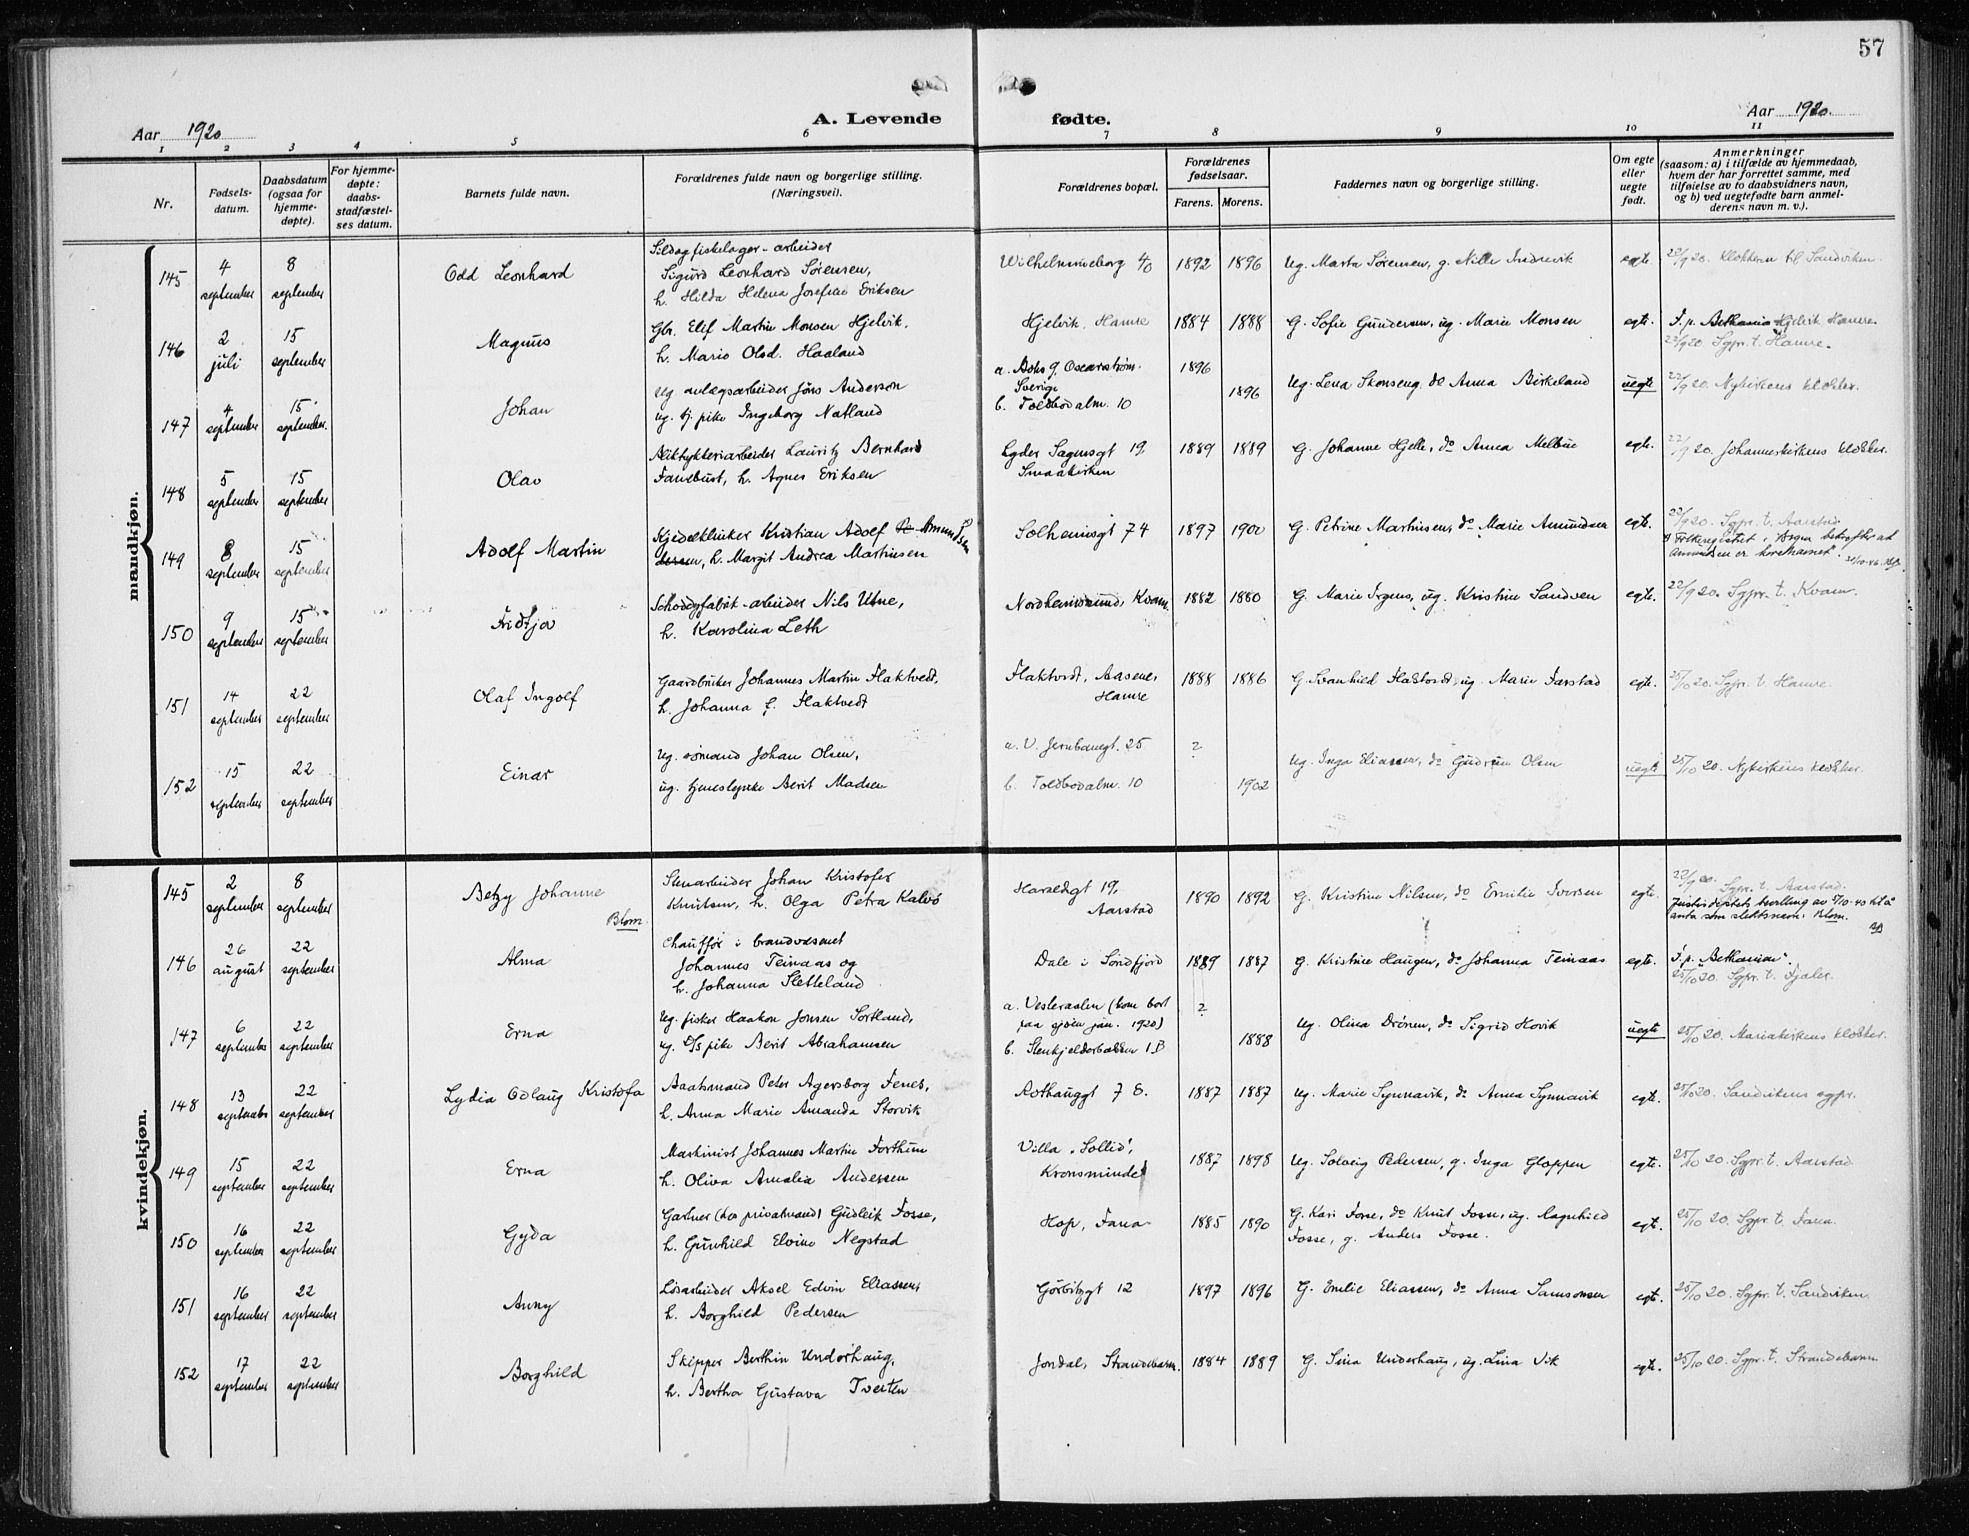 57
Aar 1920
A. Levende fødte.
Aar 1920.
1 2 3 4 5 6 7 8 9 10 11
Nr.
Fødsels-
datum.
Daabsdatum
(ogsaa for
hjemme-
døpte).
For hjemme-
døpte:
daabs-
stadfæstel-
ses datum.
Barnets fulde navn.
Forældrenes fulde navn og borgerlige stilling.
(Næringsvei).
Forældrenes bopæl.
Forældrenes
fødselsaar.
Farens. Morens.
Faddernes navn og borgerlige stilling.
Om egte
eller
uegte
født.
Anmerkninger
(saasom: a) i tilfælde av hjemmedaab,
hvem der har forrettet samme, med
tilføielse av to daabsvidners navn,
og b) ved uegtefødte barn anmel-
derens navn m. v.).
mandkjøn.
145 4 september 8 september Odd Leonhard
Sildogfiskelager-arbeider
Sigurd Leonhard Sørensen,
h. Hilda Helena Josefine Eriksen
1892 1896 Ug. Marta Sørensen, g. Nille egte. 22/9 20. Klokkern til Sandviken.
146 2 juli 15 september Magnus
Gbr. Elif Martin Monsen Hjelvik,
h. Marie Olsd. Haaland
Hjelvik, Hamre 1884 1888 G. Sofie Gundersen, ug. Marie Monsen egte. F. p. Bethania Hjelvik Hamre
22/9 20. Sgpr. t. Hamre.
147 4 september 15 september. Johan
Ug anlægsarbeider Jöns Anderson
ug. tj. pike Ingeborg Natland
a. Oscarström
Sverige 1896
b. Toldbodalm. 10 1896
Ug. Lena Skonseng, do Anna Birkeland uegte 22/9 20. Nykirkens klokker.
148 5 september 15 september Olav
Lauritz Bernhard
Fanebust, h. Agnes Eriksen
Lyder Sagensgt 19,
Smaakirken
1889 1889 G. Johanne Hjelle, do Anna Melbue egte. 22/9 20. Johanneskirkens klokker.
149 8 september 15 september Adolf Martin
Kjedelklinker Kristian Adolf Amundsen
h. Margit Andrea Martinsen
Solheimsgt 74 1897 1900 G. Petrine Martinsen, do Marie Amundsen egte. 22/9 20. Sgpr. t. Aarstad
Folkeregistret i Bergen bekræfter at
Amundsen er
150 9 september 15 september Fridtjov
Skotøyfabrik-arbeider Nils Utne,
h. Karolina Leth
Nordheimsund, Kvam. 1882 1880 G. Marie Irgens, ug. Kristine Sandven egte. 22/9 20. Sgpr. t. Kvam.
151 14 september 22 september Olaf Ingolf
Gaardbruker Johannes Martin Flaktvedt,
h. Johanna f. Flaktvedt
Flaktvedt, Aasene,
Hamre
1888 1886 ug. Marie Farstad egte. 25/10 20. Sgpr. t. Hamre.
152 15 september 22 september Einar
Ug. sømand Johan Olsen,
ug. tjenestepike Berit Madsen
a. V. Jernbanegt. 25 ?
b. Toldbodalm. 10 1902
Ug. Inga Eliassen, do Gudrun Olsen uegte 25/10 20. Nykirkens klokker.
kvindekjøn.
145 2 september 8 september Betzy Johanne
Blom.
Stenarbeider Johan Kristofer
Knutsen, h. Olga Petra Kalvø
Haraldsgt 19,
Aarstad
1890 1892 G. Kristine Nilsen, do Emilie Iversen egte. 22/9 20. Sgpr. t. Aarstad.
Justisdeptets bevilling av
anta som slektsnavn: Blom.
146 26 august 22 september Alma
Chauffør i brandvæsenet
Johannes Teinaas og
h. Johanna Sletteland
Dale i Søndfjord 1889 1887 G. Kristine Haugen, do Johanna Teinaas egte. F. p. „Bethanien".
25/10 20. Sgpr. t. Fjaler.
147 6 september 22 september Erna
Ug. fisker Haakon Jonsen Sortland,
ug. pike Berit Abrahamsen
a. Vesteraalen (kom bort
paa sjøen jan. 1920) ?
b. Stenkjelderbakken 1B 1888
Ug. Olina Drønen, do Sigrid Hovik uegte 25/10 20. Mariakirkens klokker.
148 13 september 22 september Lydia Odlaug Kristofa
Baatsmand Peter Agersborg Fenes,
h. Anna Marie Amanda Storvik
Rothauggt 7 1887 1887 Ug. Marie Synnavik, do Anna Synnavik egte. 25/10 20. Sandvikens sgpr.
149 15 september 22 september Erna
Maskinist Johannes Martin Forthun
h. Oliva Amalia Andersen
Villa „Sollid",
Kronsminde
1887 1898 Ug. Solveig Pedersen, g. Inga Gloppen egte. 25/10 20. Sgpr. t. Aarstad
150 16 september 22 september Gyda
Gartner (hos privatmand) Gudleik Fosse,
h. Gunhild Elvine Negstad
Hop, Fana 1885 1890 G. Kari Fosse, do Knut Fosse, ug. Ragnhild
Fosse, g. Anders Fosse.
egte. 25/10 20. Sgpr. t. Fana.
151 16 september 22 september Anny
Løsarbeider Aksel Edvin Eliassen,
h. Borghild Pedersen
Gørbitzgt 12 1897 1896 G. Emilie Eliassen, do Anna Samsonsen egte. 25/10 20. Sgpr. t. Sandviken.
152 17 september 22 september Borghild
Skipper Berthin Underhaug,
h. Bertha Gustava Tveiten
Jondal, Strandebarm. 1884 1889 G. Sina Underhaug, ug. Lina Vik egte. 25/10 20. Sgpr. t. Strandebarm